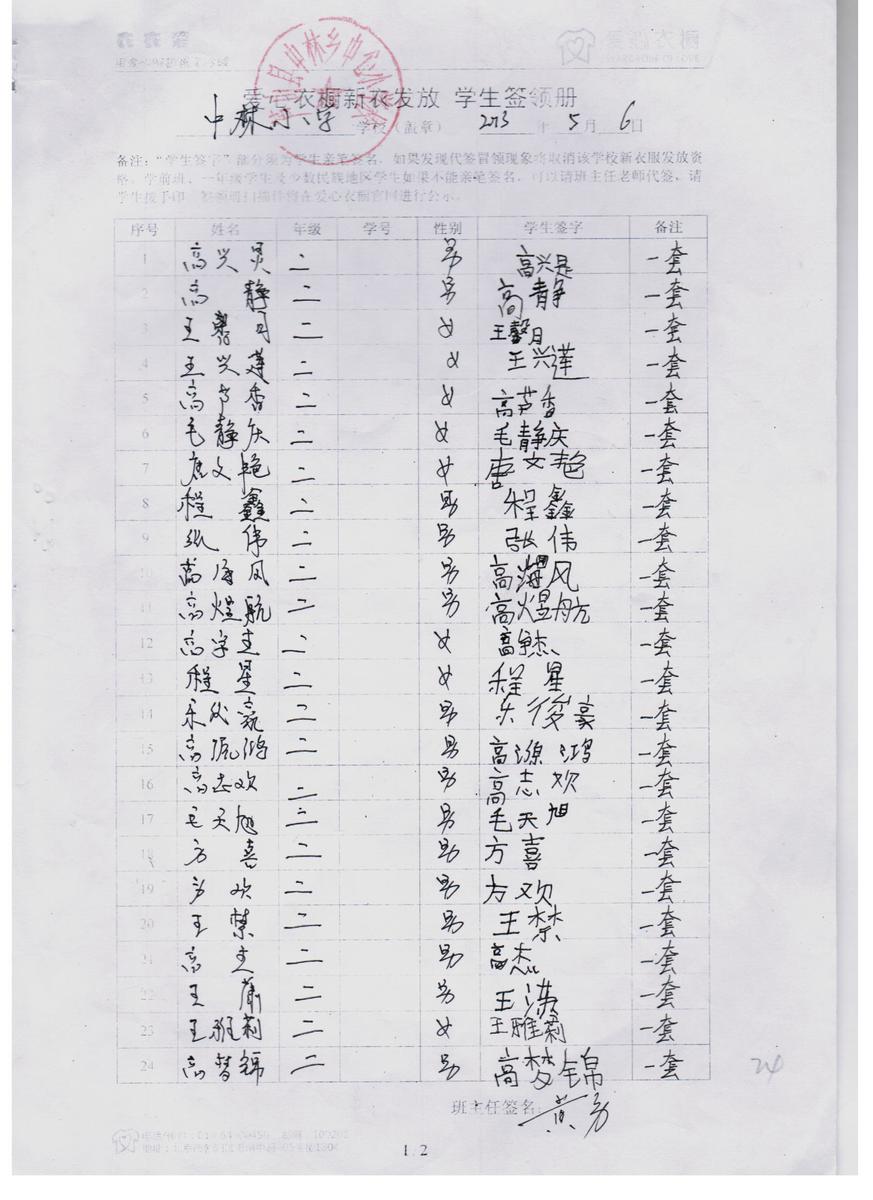 爱心衣橱
爱心衣橱新衣发放 学生签领册
中林小学 学校（盖章） 2013 年 5 月 6 日
备注：“学生签字”部分须为学生亲笔签名，如果发现代签冒领现象将取消该学校新衣服发放资
格。学前班、一年级学生及少数民族地区学生如果不能亲笔签名，可以请班主任老师代签，请
学生按手印。签领册扫描件将在爱心衣橱官网进行公示。
序号 姓名 年级 学号 性别 学生签字 备注
1 高兴 二 男 高兴是 一套
2 高静 二 男 高静 一套
3 王馨月 二 女 王馨月 一套
4 王兴莲 二 女 王兴莲 一套
5 高芦香 二 女 高芦香 一套
6 毛静庆 二 女 毛静庆 一套
7 唐文艳 二 女 唐文艳 一套
8 程鑫 二 男 程鑫 一套
9 张伟 二 男 张伟 一套
10 高风 二 男 高海风 一套
11 高煜航 二 男 高煜航 一套
12 高字 二 女 高 一套
13 程星 二 女 程星 一套
14 二 男 乐俊豪 一套
15 高鸿 二 男 高源鸿 一套
16 高志欢 二 男 高志欢 一套
17 毛天旭 二 男 毛天旭 一套
18 方喜 二 男 方喜 一套
19 方欢 二 男 方欢 一套
20 王禁 二 男 王禁 一套
21 高杰 二 男 高杰 一套
22 王 二 男 王涛 一套
23 王雅莉 二 女 王雅莉 一套
24 高梦锦 二 男 高梦锦 一套
24
班主任签名：黄方
1.2